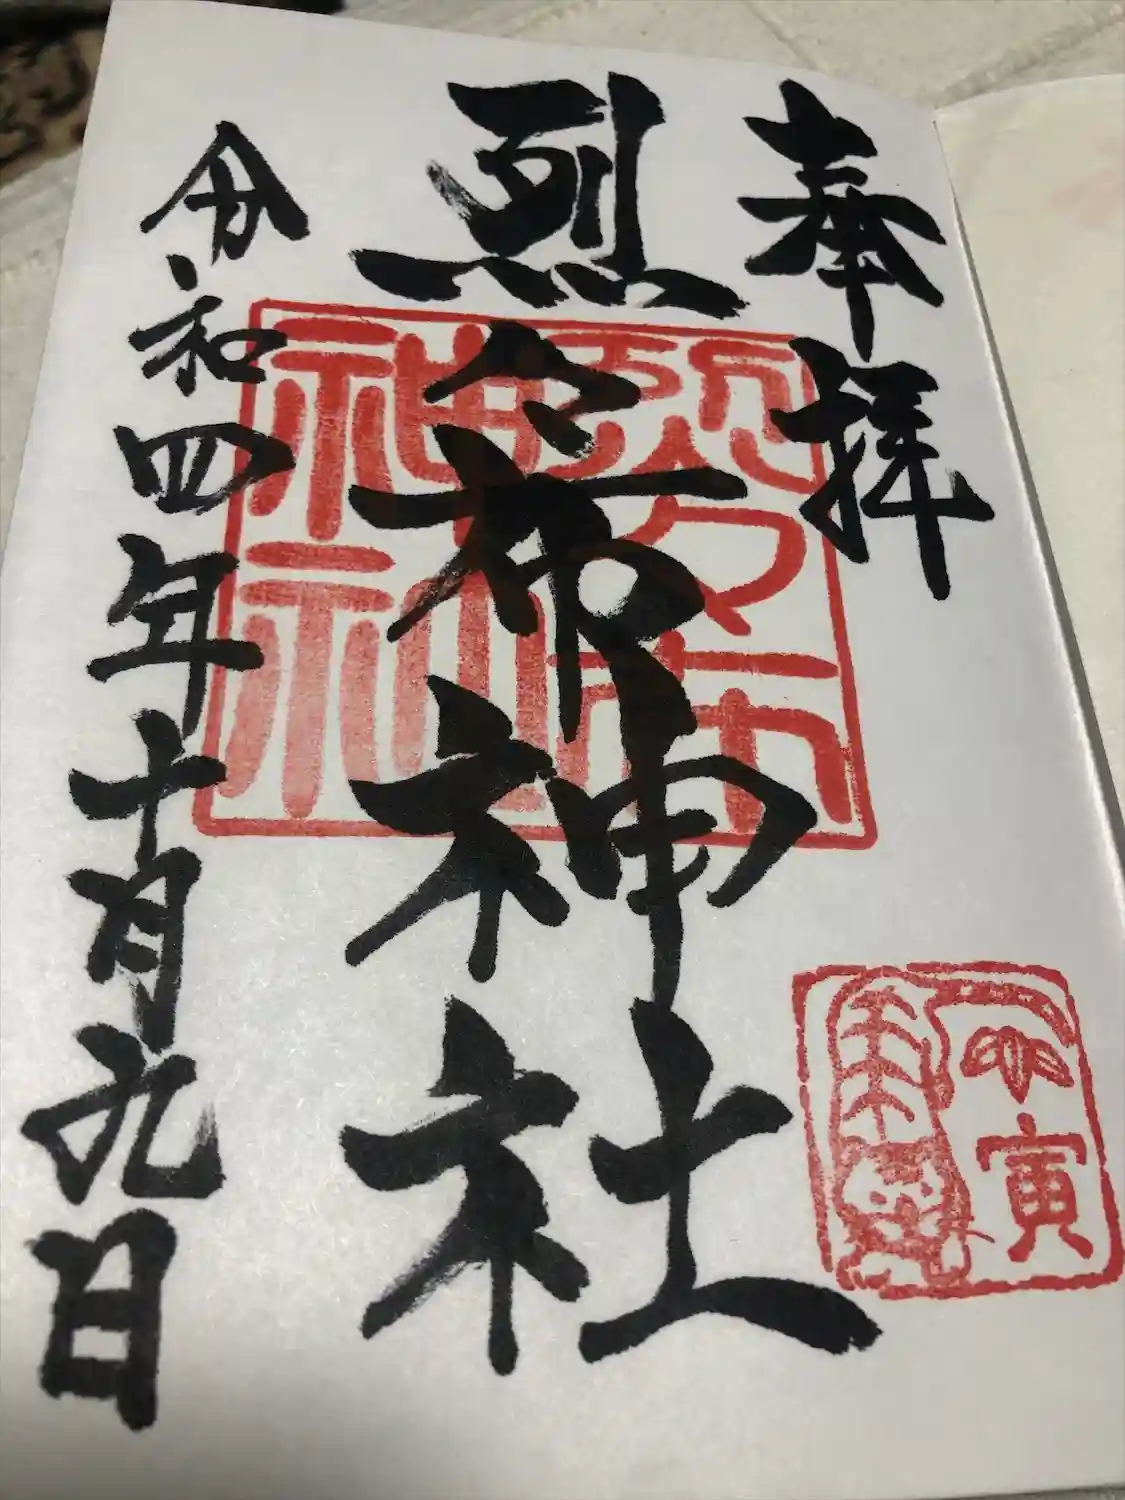 奉拝
烈々布神社
令和四年十月九日
烈々布
神社
寅